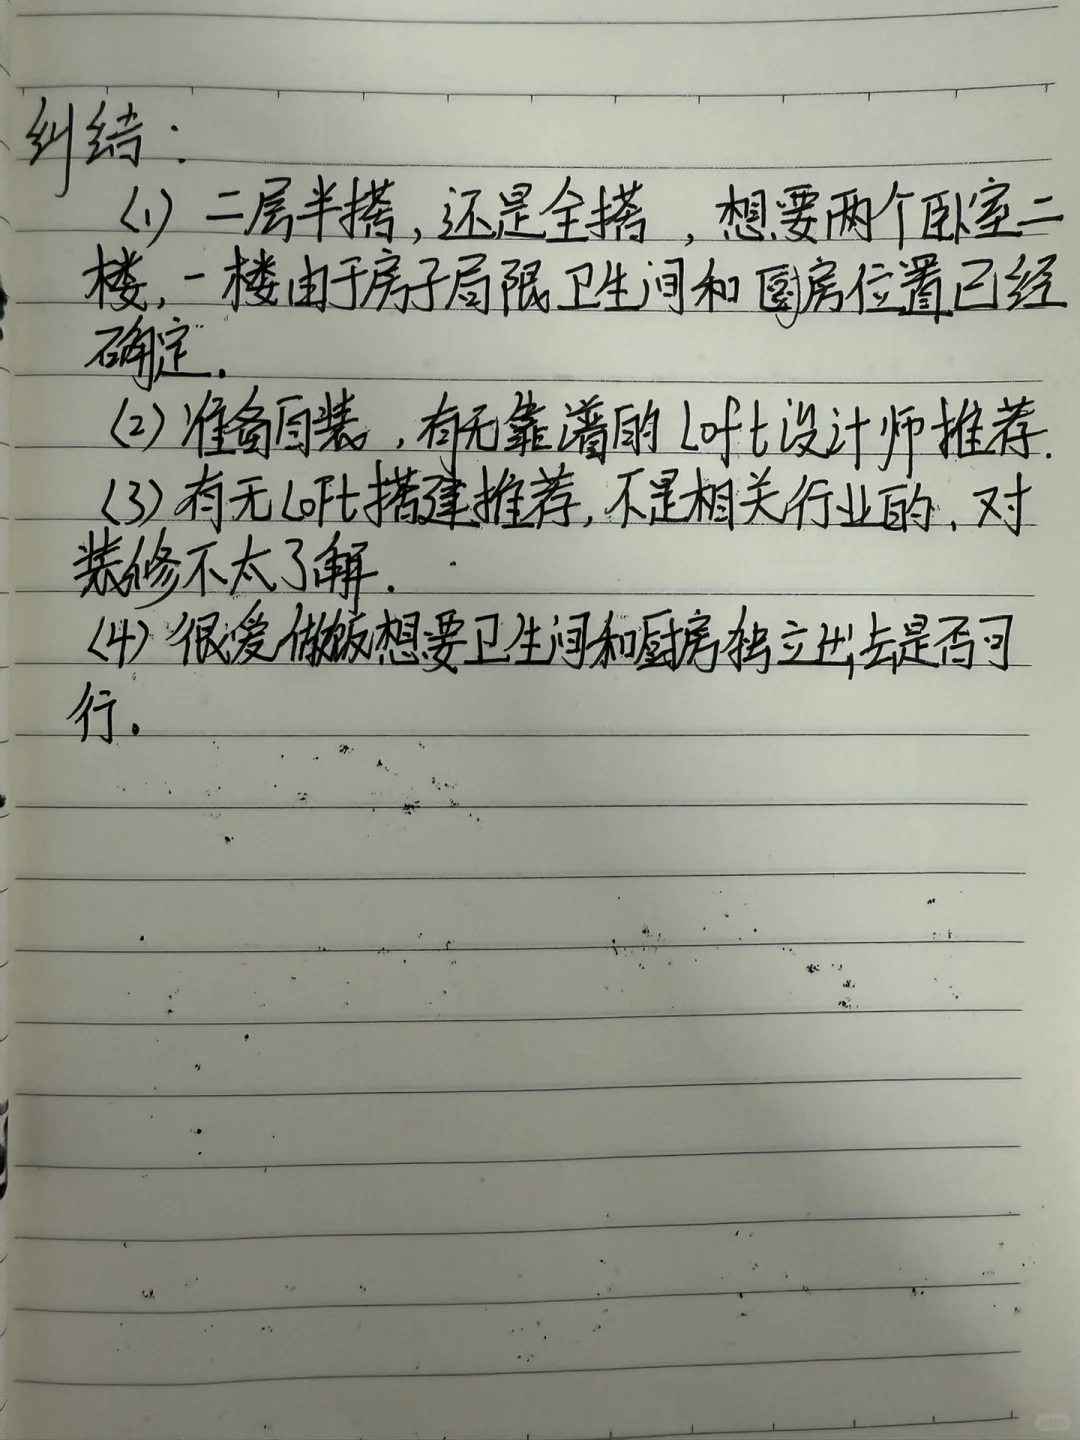 纠结：
(1) 二层半搭，还是全搭，想要两个卧室二
楼，一楼由于房子局限卫生间和厨房位置已经
确定.
(2) 准备自装，有无靠谱的Loft设计师推荐.
(3) 有无Loft搭建推荐，不是相关行业的、对
装修不太了解.
(4) 很爱做饭想要卫生间和厨房独立出去是否可
行.